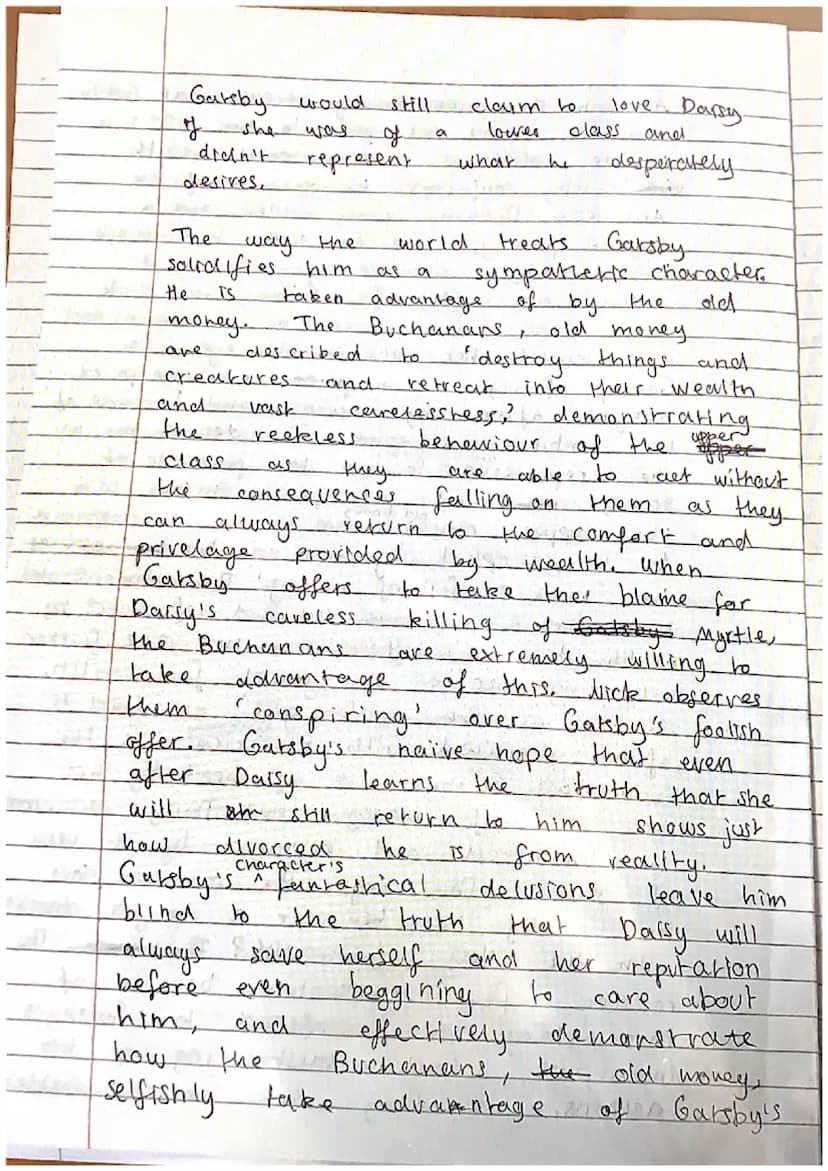 Gatsby would still claim to love Daisy
if she was of a lower class and
didn't represent what he desperately
desires.
The way the world treats Gatsby
solidifies him as a sympathetic character.
He is taken advantage of by the old
money. The Buchanans, old money
are described to 'destroy things and
creatures and retreat into their wealth
and vast carelessness', demonstrating
the reckless behaviour of the upper
class as they are able to act without
the consequences falling on them as they
can always return to the comfort and
privelage provided by wealth. When
Gatsby offers to take the blame for
Daisy's careless killing of Gatsby Myrtle,
the Buchanans are extremely willing to
take advantage of this. Nick observes
them 'conspiring' over Gatsby's foolish
offer. Gatsby's naive hope that even
after Daisy learns the truth that she
will still return to him shows just
how divorced he is from reality.
Gatsby's character's fantastical delusions leave him
blind to the truth that Daisy will
always save herself and her reputation
before even beggining to care about
him, and effectively demonstrate
how the Buchanans, the old money,
selfishly take advantage of Gatsby's